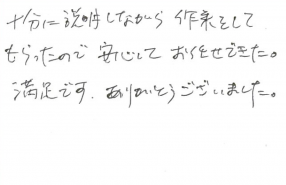 十分に説明しながら作業をして
もらったので安心しておまかせできた。
満足です。ありがとうございました。